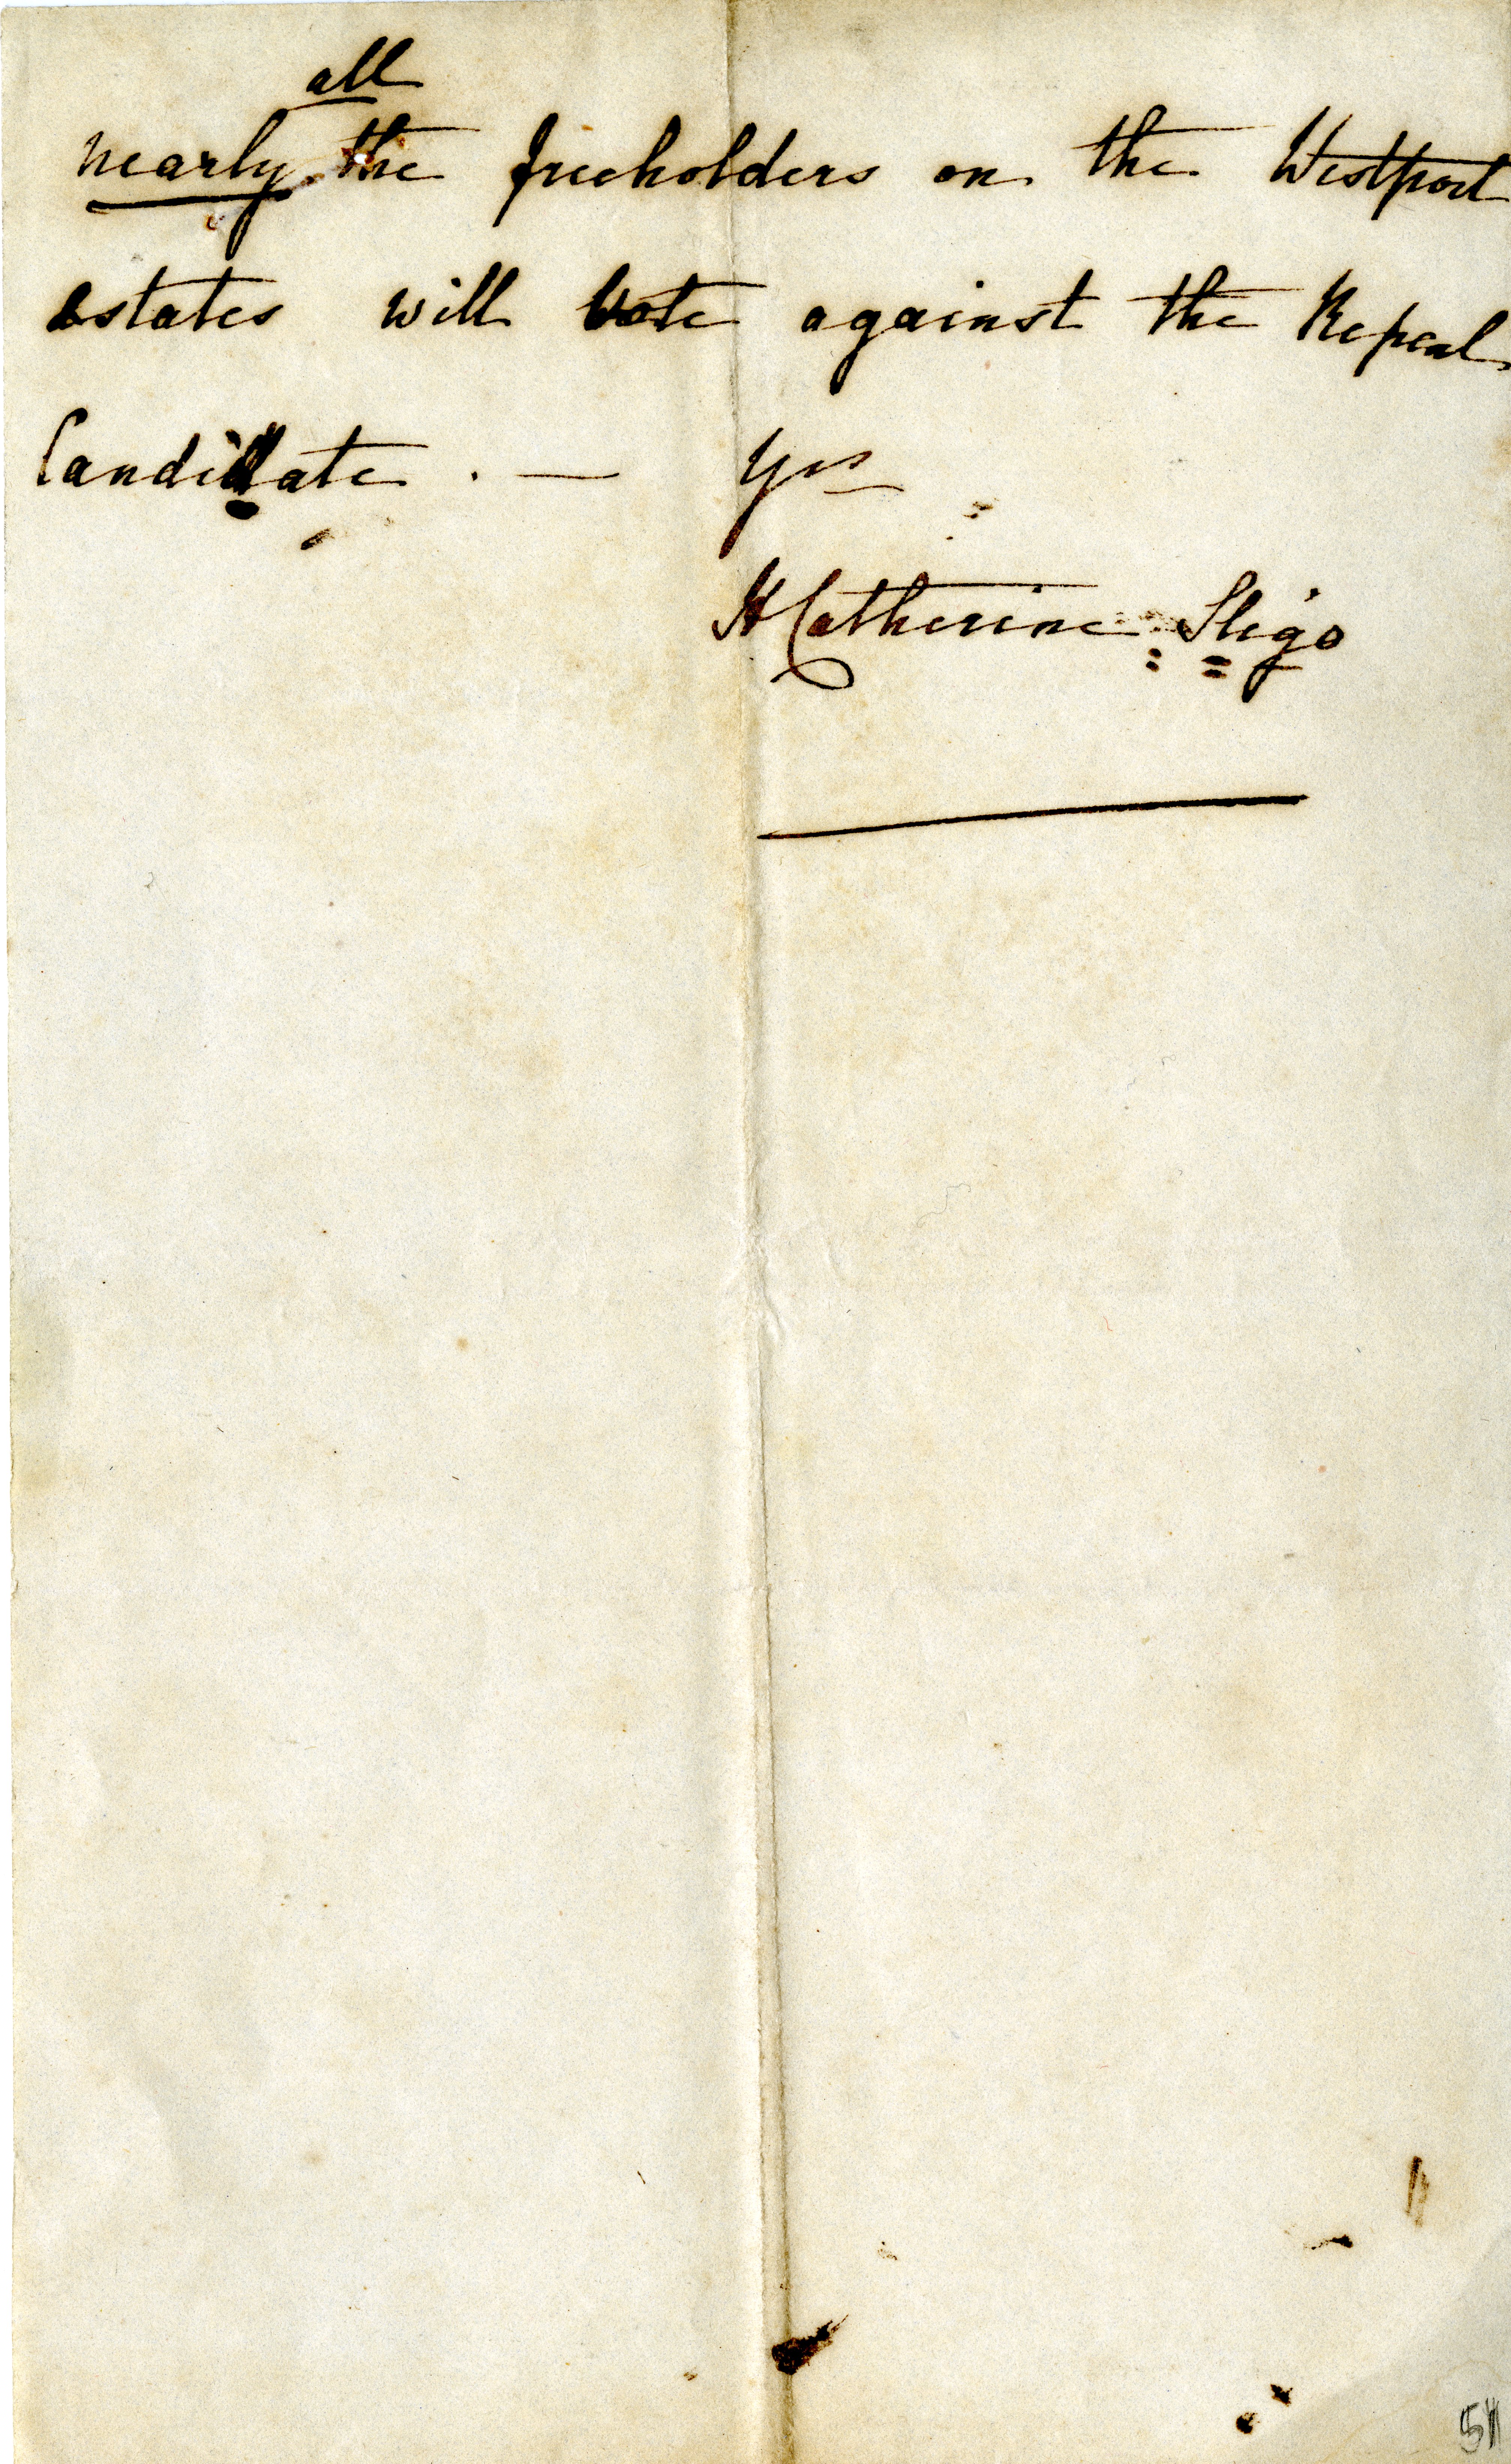 all
nearly the freeholders on the Westport
estates will vote against the Repeal
Candidate . — Yrs
H Catherine Sligo